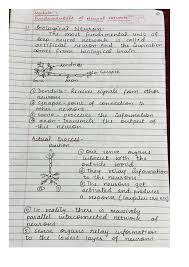 Module-1
Fundamentals of Neural Network
Biological Neuron
The most fundamental unit of
deep neural network is called
artificial neuron and the inspiration
comes from biological brain
dendrite
① Dendrite - Receives signals from other
neurons
② Synapse - point of connection to
other neurons
③ Soma - processes the information
④ Axon - Transmits the output of
this neuron
Actual Process
① Our sense organs
interact with the
outside world
② They relay information
to the neurons
③ The neurons get
activated and produces
a response
④ In reality there is massively
parallel interconnected network of
neurons
⑤ Sense organs relay information
to the lowest layer of neurons